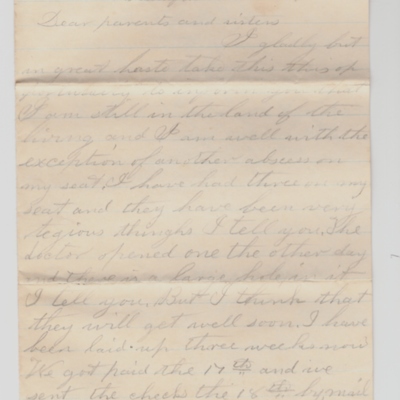 Dear parents and sister
I gladly but
in great haste take this this op
I am still in the land of the
living and I am well with the
exception of another absess on
my seat. I have had three on my
seat and they have been very
tegious thinghs I tell you. The
doctor opened one the other day
and there is a large hole in it
I tell you. But I think that
they will get well soon. I have
been laid up three weeks now
We got paid the 17th and we
sent the check the 18th by mail